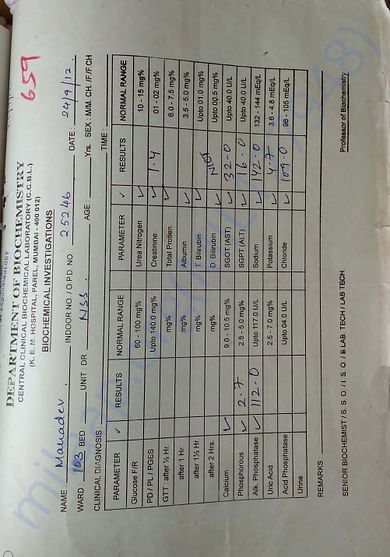 659
DEPARTMENT OF BIOCHEMISTRY
CENTRAL CLINICAL BIOCHEMICAL LABORATORY (C.C.B.L.)
(K. E. M. HOSPITAL, PAREL, MUMBAI - 400 012)
BIOCHEMICAL INVESTIGATIONS
NAME Mahadev INDOOR NO / O.P.D. NO. 25246 DATE 24/9/12
WARD 103 BED UNIT DR NSS AGE Yrs. SEX: M/M. CH. /F/F CH
CLINICAL DIAGNOSIS TIME
PARAMETER ✓ RESULTS NORMAL RANGE PARAMETER ✓ RESULTS NORMAL RANGE
Glucose F/R 60 - 100 mg% Urea Nitrogen ✓ 10 - 15 mg%
PD / PL / PGES Upto 140.0 mg% Creatinine ✓ 1.4 01 - 02 mg%
GTT : after ½ Hr mg% Total Protien ✓ 6.0 - 7.5 mg%
after 1 Hr mg% Albumin ✓ 3.5 - 5.0 mg%
after 1½ Hr mg% T. Bilirubin ✓ Upto 01.0 mg%
after 2 Hrs. mg% D. Bilirubin ✓ Upto 00.5 mg%
Calcium ✓ 9.0 - 10.5 mg% SGOT (AST) ✓ 32.0 Upto 40.0 U/L
Phosphorous ✓ 2.7 2.5 - 5.0 mg% SGPT (ALT) ✓ 16.0 Upto 40.0 U/L
Alk. Phosphatase ✓ 112.0 Upto 117.0 U/L Sodium ✓ 142.0 132 - 144 mEq/L
Uric Acid 2.5 - 7.0 mg% Potassium ✓ 4.7 3.6 - 4.8 mEq/L
Acid Phosphatase Upto 04.0 U/L Chloride ✓ 109.0 98 - 105 mEq/L
Urine
REMARKS
SENIOR BIOCHEMIST / S. S. O. / I. S. O. / S. LAB TECH / LAB TECH. Professor of Biochemistry